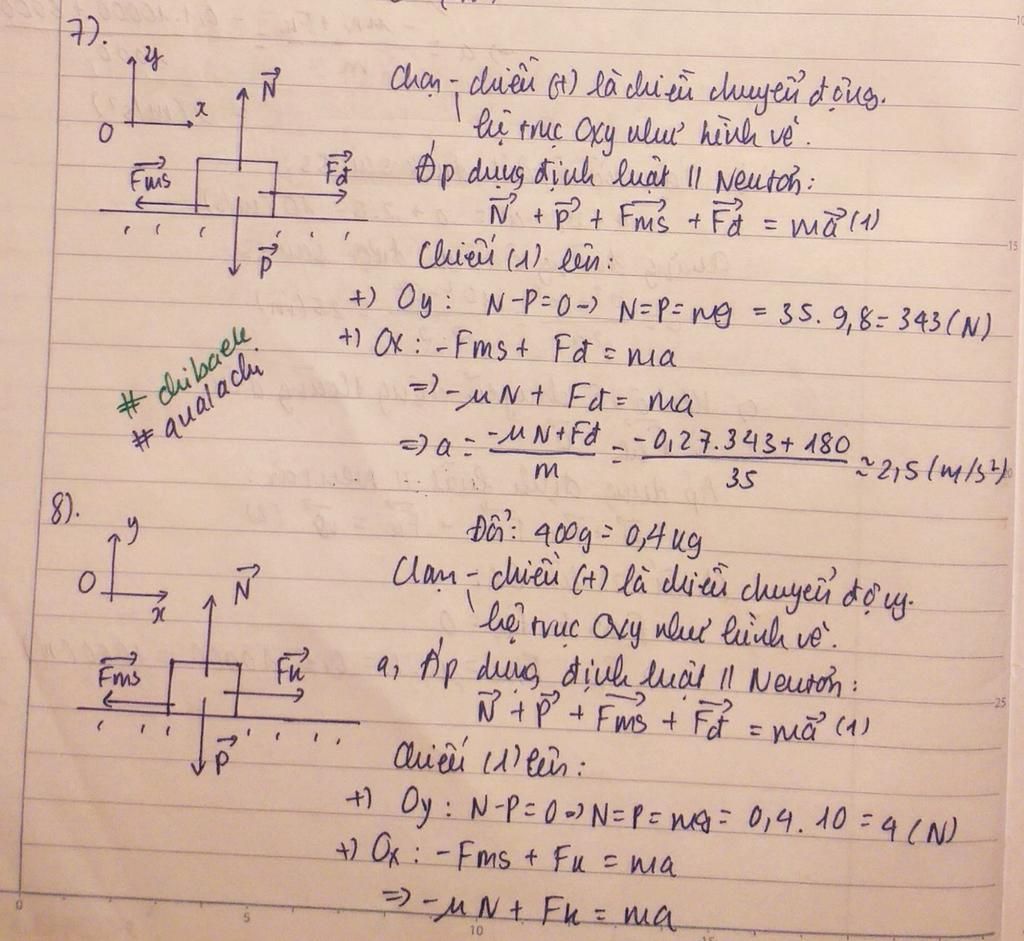 7).
y
x
O
N⃗
Fms⃗
Fđ⃗
P⃗
Chọn - chiều (+) là chiều chuyển động.
\ hệ trục Oxy như hình vẽ.
Áp dụng định luật II Neuton:
N⃗ + P⃗ + Fms⃗ + Fđ⃗ = ma⃗ (1)
Chiếu (1) lên:
+) Oy: N-P=0 → N=P=mg = 35. 9,8 = 343 (N)
+) Ox: -Fms + Fđ = ma
=> -μN + Fđ = ma
=> a = (-μN+Fđ)/m = (-0,27.343+180)/35 ≈ 2,5 (m/s²)
# chibaek
# qualachi
8).
y
O
x
N⃗
Fms⃗
Fk⃗
P⃗
Đổi: 400g = 0,4 kg
Chọn - chiều (+) là chiều chuyển động.
\ hệ trục Oxy như hình vẽ.
a, Áp dụng định luật II Neuton:
N⃗ + P⃗ + Fms⃗ + Fđ⃗ = ma⃗ (1)
Chiếu (1) lên:
+) Oy: N-P=0 → N=P=mg = 0,4. 10 = 4 (N)
+) Ox: -Fms + Fk = ma
=> -μN + Fk = ma
0 5 10 15
15
25